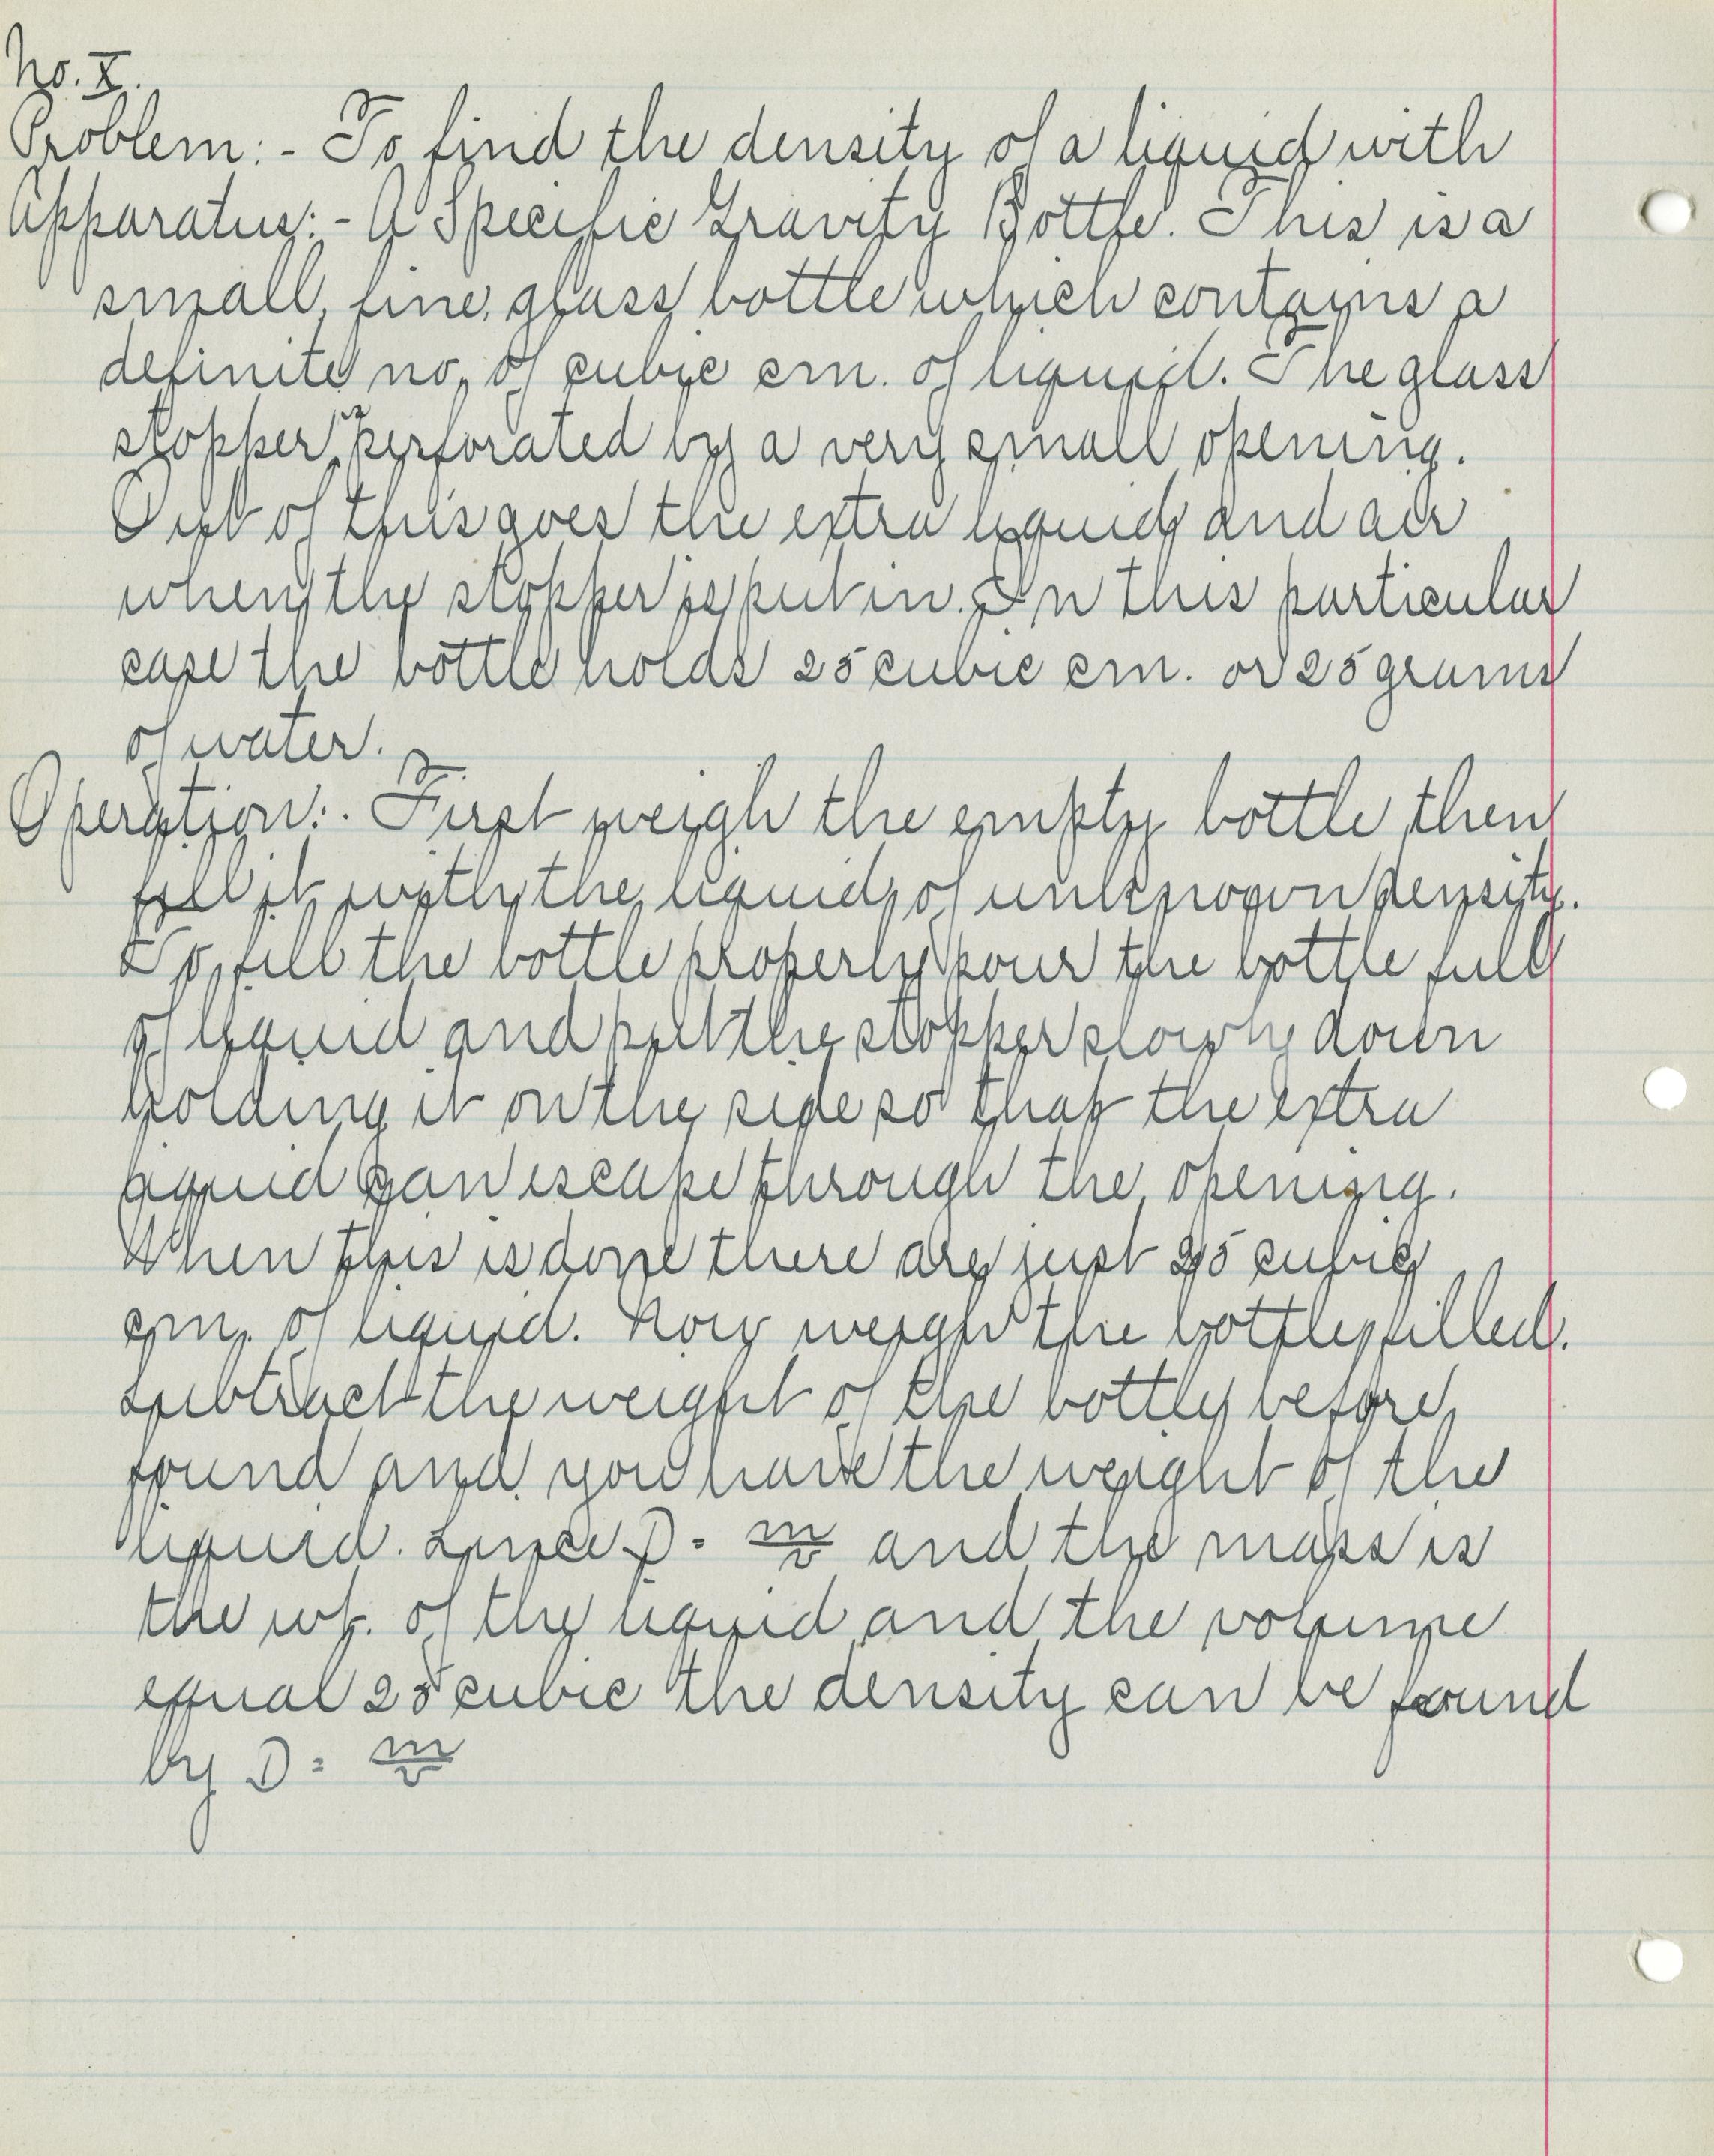 No. X.
Problem:- To find the density of a liquid with
Apparatus:- A Specific Gravity Bottle. This is a
small, fine, glass bottle which contains a
definite no. of cubic cm. of liquid. The glass
stopper is perforated by a very small opening.
Out of this goes the extra liquid and air
when the stopper is put in. In this particular
case the bottle holds 25 cubic cm. or 25 grams
of water.
Operation:- First weigh the empty bottle then
fill it with the liquid of unknown density.
To fill the bottle properly pour the bottle full
of liquid and put the stopper slowly down
holding it on the side so that the extra
liquid can escape through the opening.
When this is done there are just 25 cubic
cm. of liquid. Now weigh the bottle filled.
Subtract the weight of the bottle before
found and you have the weight of the
liquid. Since D = m/v and the mass is
the wt. of the liquid and the volume
equal 25 cubic the density can be found
by D = m/v